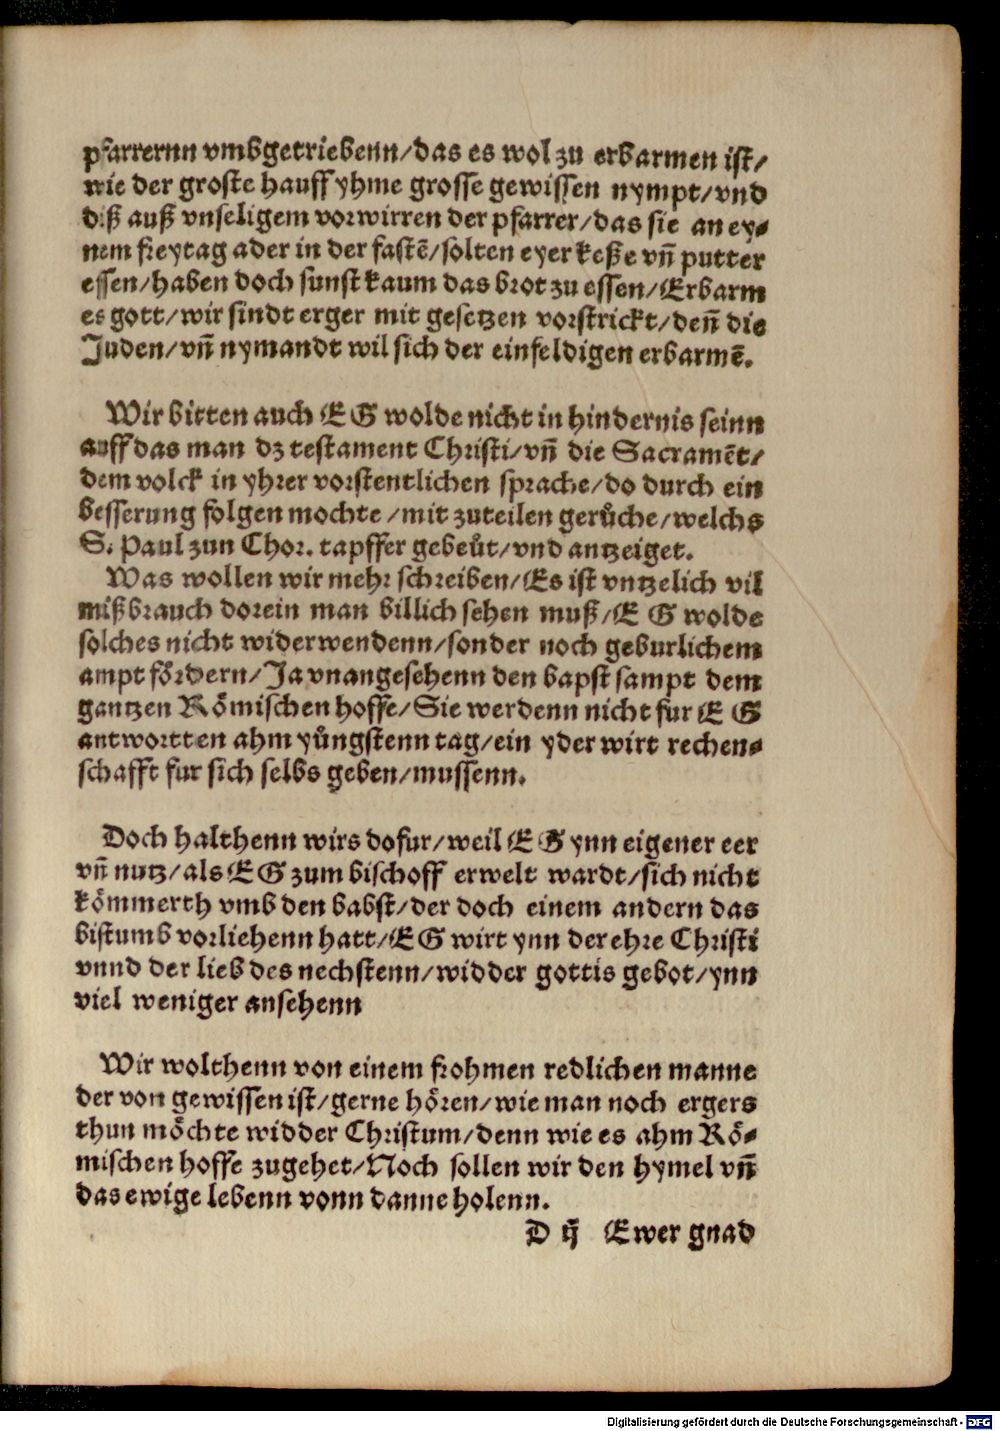 pfarrernn vmbgetriebenn/das es wol zu erbarmen ist/
wie der groste hauff yhme grosse gewissen nympt/vnd
diß auß vnseligem vorwirren der pfarrer/das sie an ey⸗
nem freytag ader in der fastē/solten eyer keße vn̄ putter
essen/haben doch sunst kaum das brot zu essen/Erbarm
es gott/wir sindt erger mit gesetzen vorstrickt/den̄ die
Juden/vn̄ nymandt wil sich der einfeldigen erbarmē.
Wir bitten auch E G wolde nicht in hindernis seinn
auff das man dz testament Christi/vn̄ die Sacramēt/
dem volck in yhrer vorstentlichen sprache/do durch ein
besserung folgen mochte/mit zuteilen gerůche/welchs
S. Paul zun Chor. tapffer gebeůt/vnd antzeiget.
Was wollen wir mehr schreiben/Es ist vntzelich vil
mißbrauch dorein man billich sehen muß/E G wolde
solches nicht widerwendenn/sonder noch geburlichem
ampt fördern/Ja vnangesehenn den bapst sampt dem
gantzen Römischen hoffe/Sie werdenn nicht fur E G
antwortten ahm yůngstenn tag/ein yder wirt rechen⸗
schafft fur sich selbs geben/mussenn.
Doch halthenn wirs dofur/weil E G ynn eigener eer
vn̄ nutz/als E G zum bischoff erwelt wardt/sich nicht
kömmerth vmb den babst/der doch einem andern das
bistumb vorliehenn hatt/E G wirt ynn der ehre Christi
vnnd der lieb des nechstenn/widder gottis gebot/ynn
viel weniger ansehenn
Wir wolthenn von einem frohmen redlichen manne
der von gewissen ist/gerne hören/wie man noch ergers
thun möchte widder Christum/denn wie es ahm Rö⸗
mischen hoffe zugehet/Noch sollen wir den hymel vn̄
das ewige lebenn vonn danne holenn.
D ij Ewer gnad
Digitalisierung gefördert durch die Deutsche Forschungsgemeinschaft - DFG